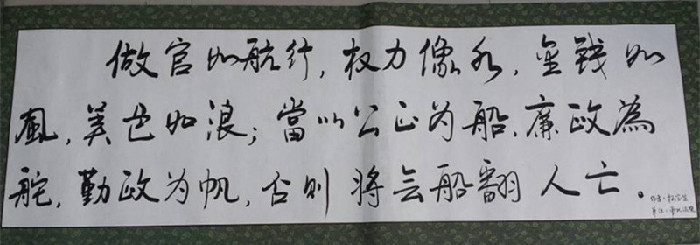 做官如航行,权力像水,金錢如
風,美色如浪;當以公正为船,廉政為
舵,勤政为帆,否则將会船翻人亡。